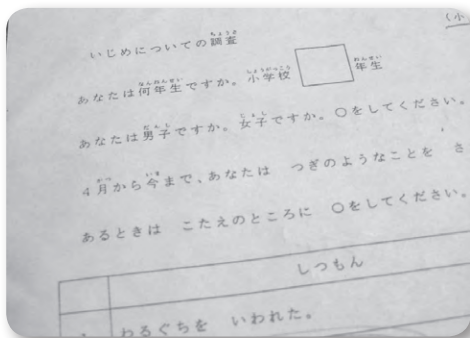 (小
いじめについての調査
あなたは何年生ですか。小学校 年生
あなたは男子ですか。女子ですか。○をしてください。
4月から今まで、あなたは つぎのようなことを さ
あるときは こたえのところに ○をしてください。
しつもん
わるぐちを いわれた。